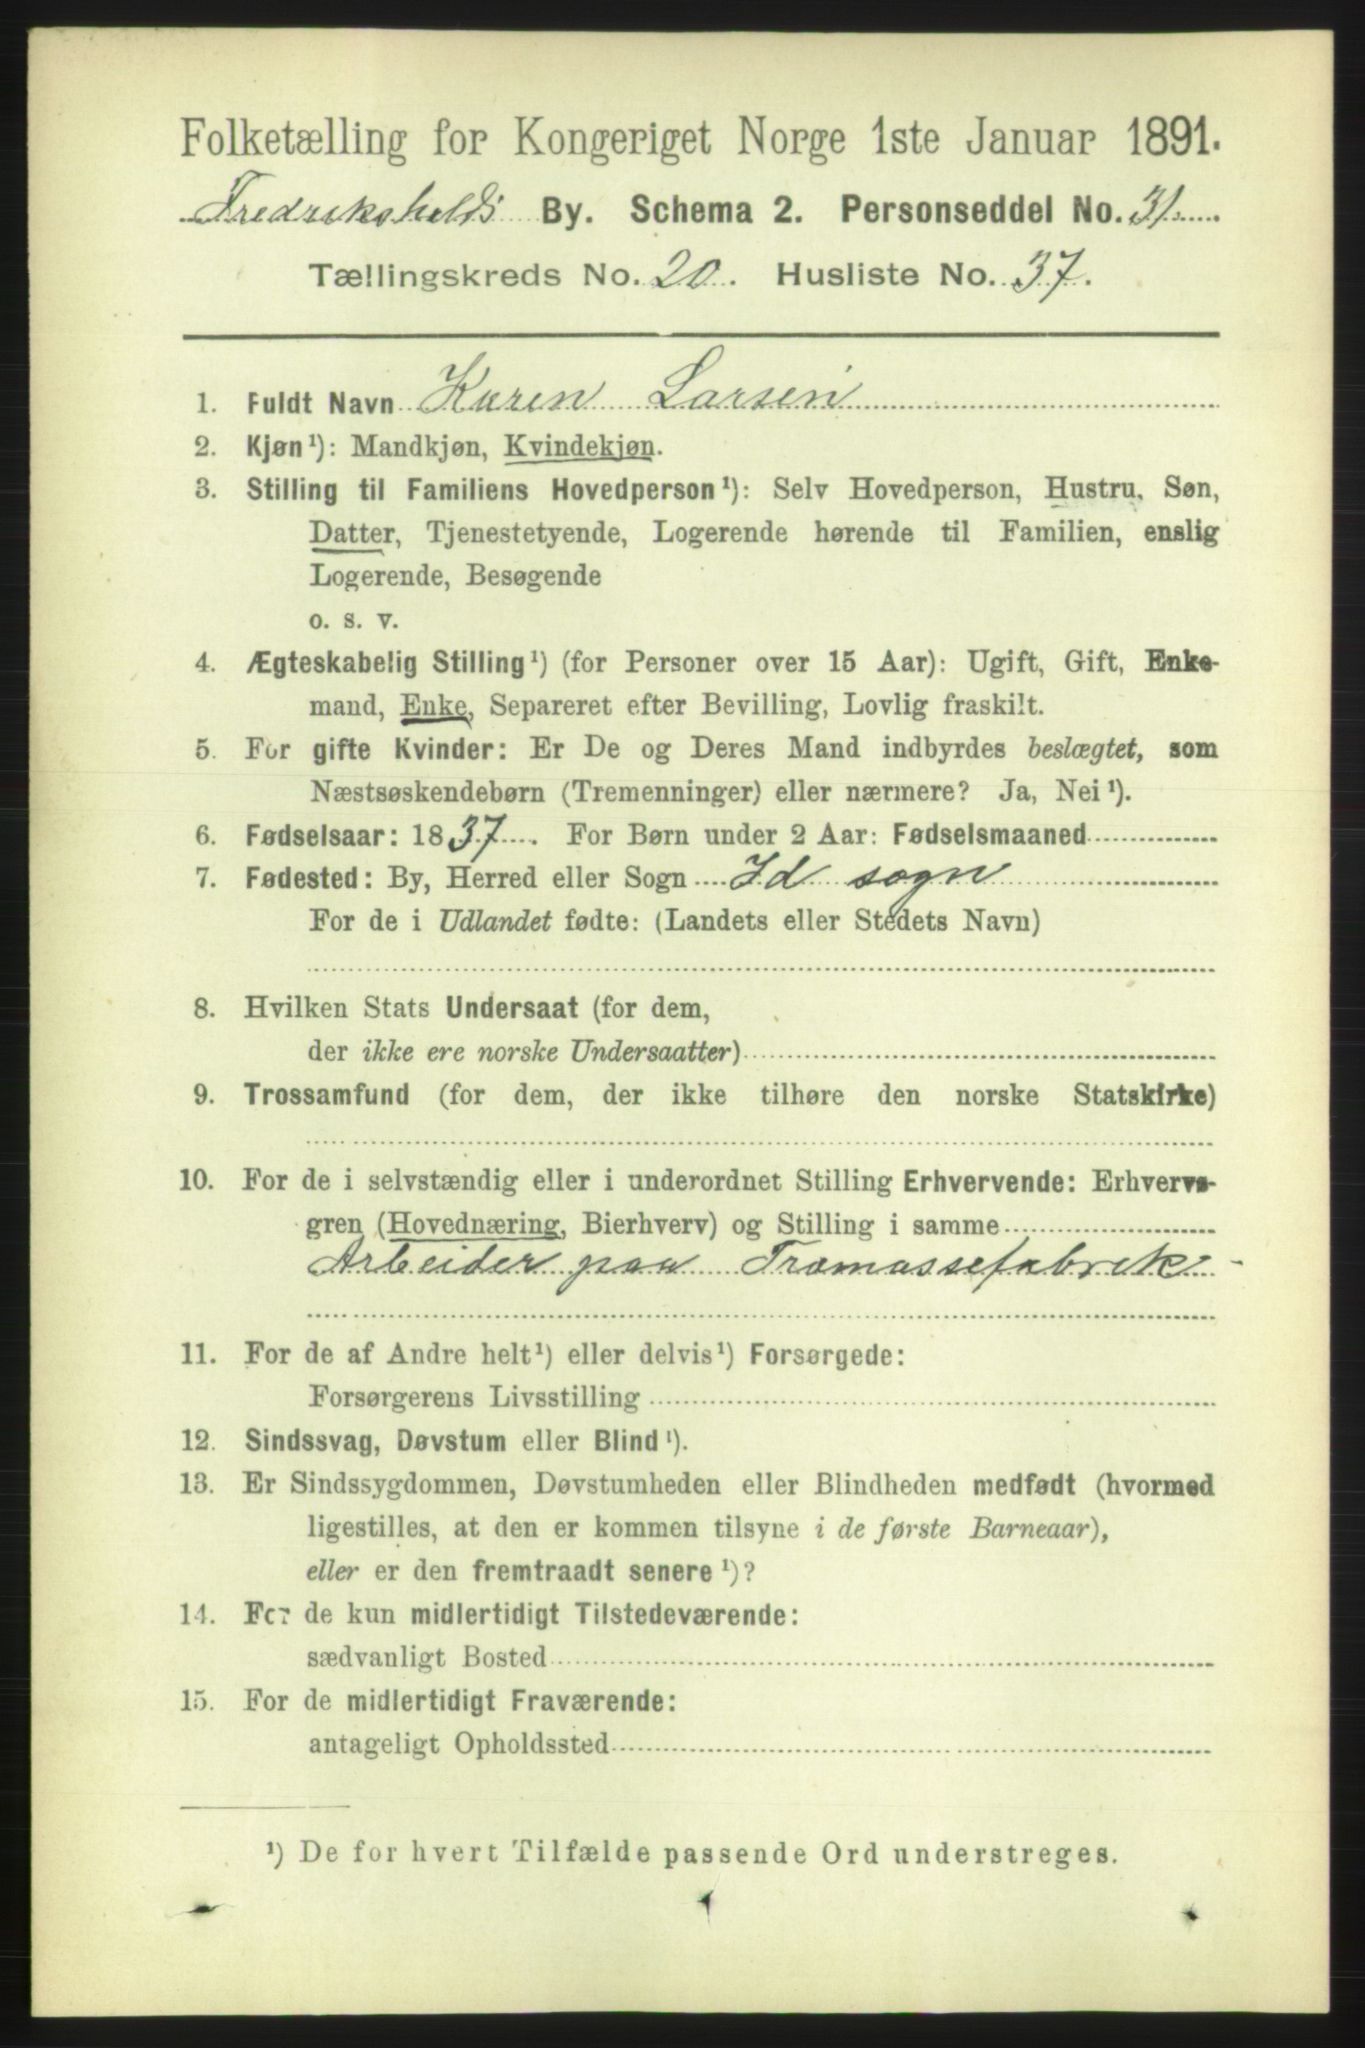 Folketælling for Kongeriget Norge 1ste Januar 1891.
Fredrikshalds By. Schema 2. Personseddel No. 31.
Tællingskreds No. 20. Husliste No. 37.
1. Fuldt Navn Karen Larsen
2. Kjøn¹): Mandkjøn, Kvindekjøn.
3. Stilling til Familiens Hovedperson¹): Selv Hovedperson, Hustru, Søn,
Datter, Tjenestetyende, Logerende hørende til Familien, enslig
Logerende, Besøgende
o. s. v.
4. Ægteskabelig Stilling¹) (for Personer over 15 Aar): Ugift, Gift, Enke-
mand, Enke, Separeret efter Bevilling, Lovlig fraskilt.
5. For gifte Kvinder: Er De og Deres Mand indbyrdes beslægtet, som
Næstsøskendebørn (Tremenninger) eller nærmere? Ja, Nei¹).
6. Fødselsaar: 1837. For Børn under 2 Aar: Fødselsmaaned
7. Fødested: By, Herred eller Sogn Id sogn
For de i Udlandet fødte: (Landets eller Stedets Navn)
8. Hvilken Stats Undersaat (for dem,
der ikke ere norske Undersaatter)
9. Trossamfund (for dem, der ikke tilhøre den norske Statskirke)
10. For de i selvstændig eller i underordnet Stilling Erhvervende: Erhvervs-
gren (Hovednæring, Bierhverv) og Stilling i samme
Arbeider paa Tramassefabrik -
11. For de af Andre helt¹) eller delvis¹) Forsørgede:
Forsørgerens Livsstilling
12. Sindssvag, Døvstum eller Blind¹).
13. Er Sindssygdommen, Døvstumheden eller Blindheden medfødt (hvormed
ligestilles, at den er kommen tilsyne i de første Barneaar),
eller er den fremtraadt senere¹)?
14. For de kun midlertidigt Tilstedeværende:
sædvanligt Bosted
15. For de midlertidigt Fraværende:
antageligt Opholdssted
¹) De for hvert Tilfælde passende Ord understreges.